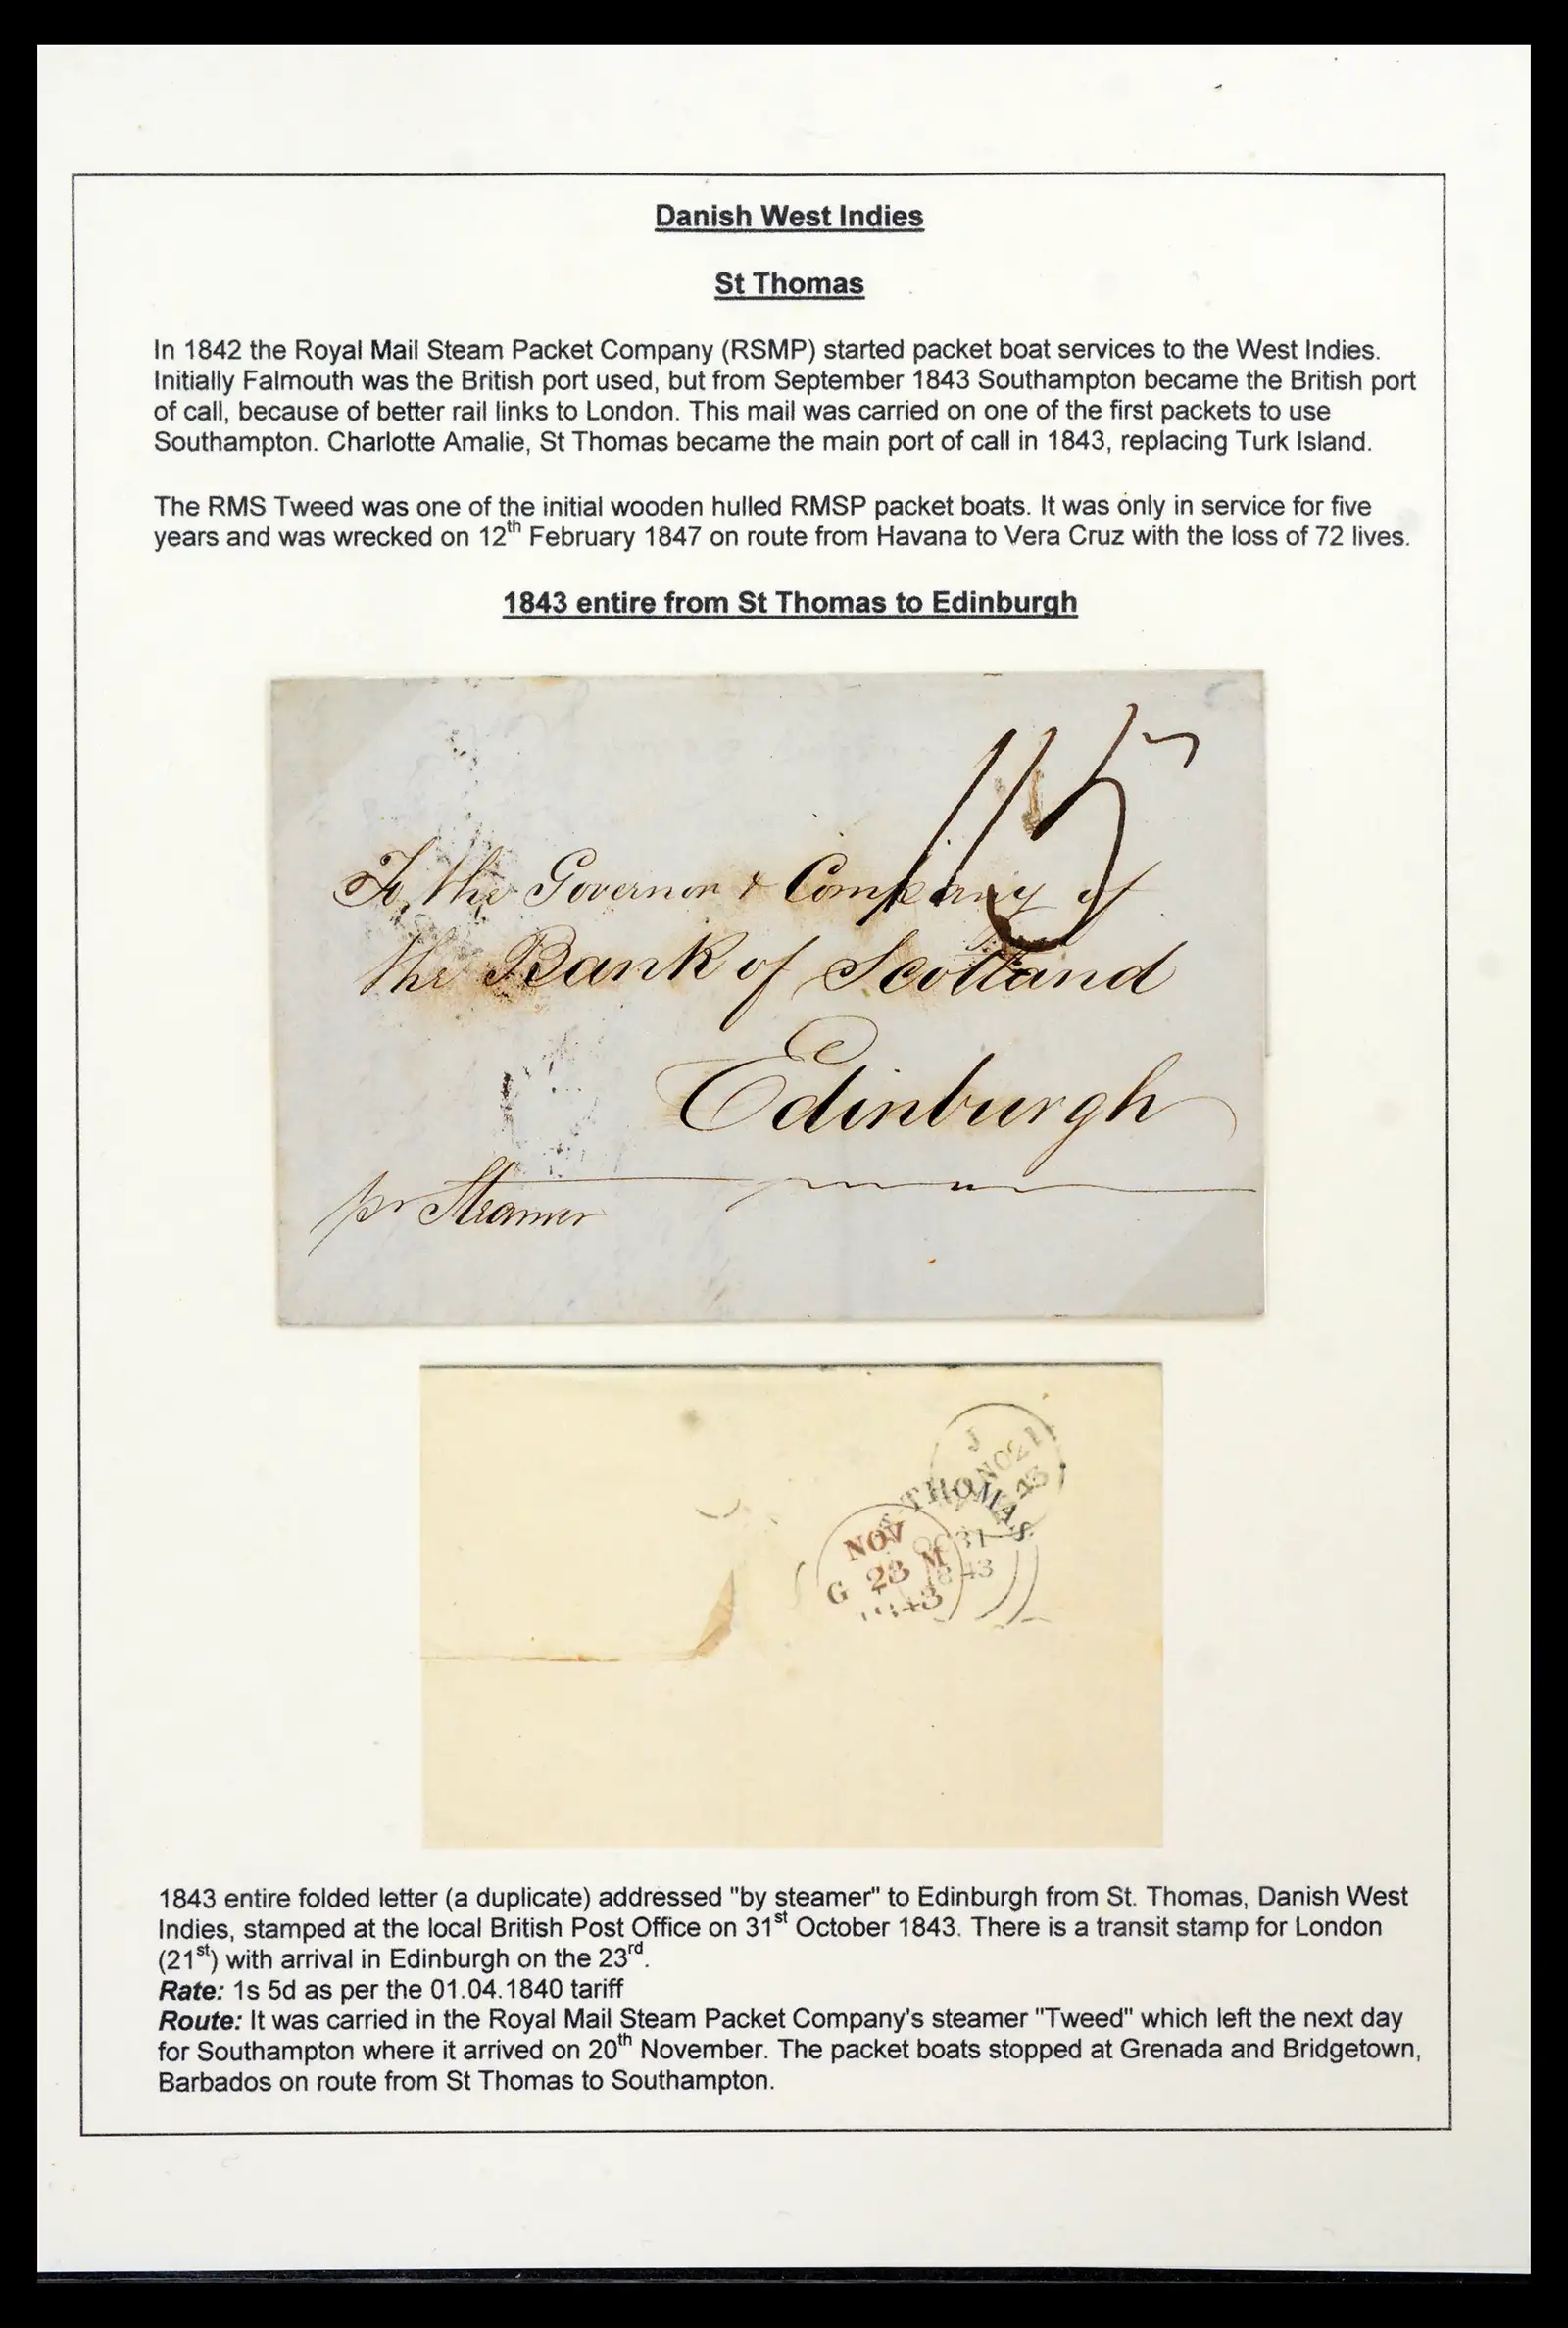 Danish West Indies
St Thomas
In 1842 the Royal Mail Steam Packet Company (RSMP) started packet boat services to the West Indies.
Initially Falmouth was the British port used, but from September 1843 Southampton became the British port
of call, because of better rail links to London. This mail was carried on one of the first packets to use
Southampton. Charlotte Amalie, St Thomas became the main port of call in 1843, replacing Turk Island.
The RMS Tweed was one of the initial wooden hulled RMSP packet boats. It was only in service for five
years and was wrecked on 12th February 1847 on route from Havana to Vera Cruz with the loss of 72 lives.
1843 entire from St Thomas to Edinburgh
1/5
To the Governor & Company of
the Bank of Scotland
Edinburgh
pr Steamer
J
NO 21
43
THOMAS
OC 31
1843
NOV
G 23 M
1843
1843 entire folded letter (a duplicate) addressed "by steamer" to Edinburgh from St. Thomas, Danish West
Indies, stamped at the local British Post Office on 31st October 1843. There is a transit stamp for London
(21st) with arrival in Edinburgh on the 23rd.
Rate: 1s 5d as per the 01.04.1840 tariff
Route: It was carried in the Royal Mail Steam Packet Company's steamer "Tweed" which left the next day
for Southampton where it arrived on 20th November. The packet boats stopped at Grenada and Bridgetown,
Barbados on route from St Thomas to Southampton.